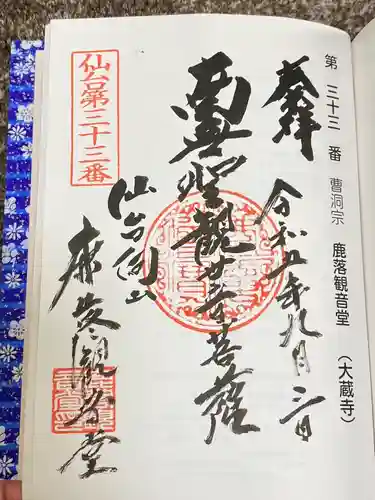 第三十三番 曹洞宗 鹿落観音堂(大蔵寺)
奉拝
令和五年九月三日
聖観世音菩薩
仙台第三十三番
仙台向山
鹿落観音堂